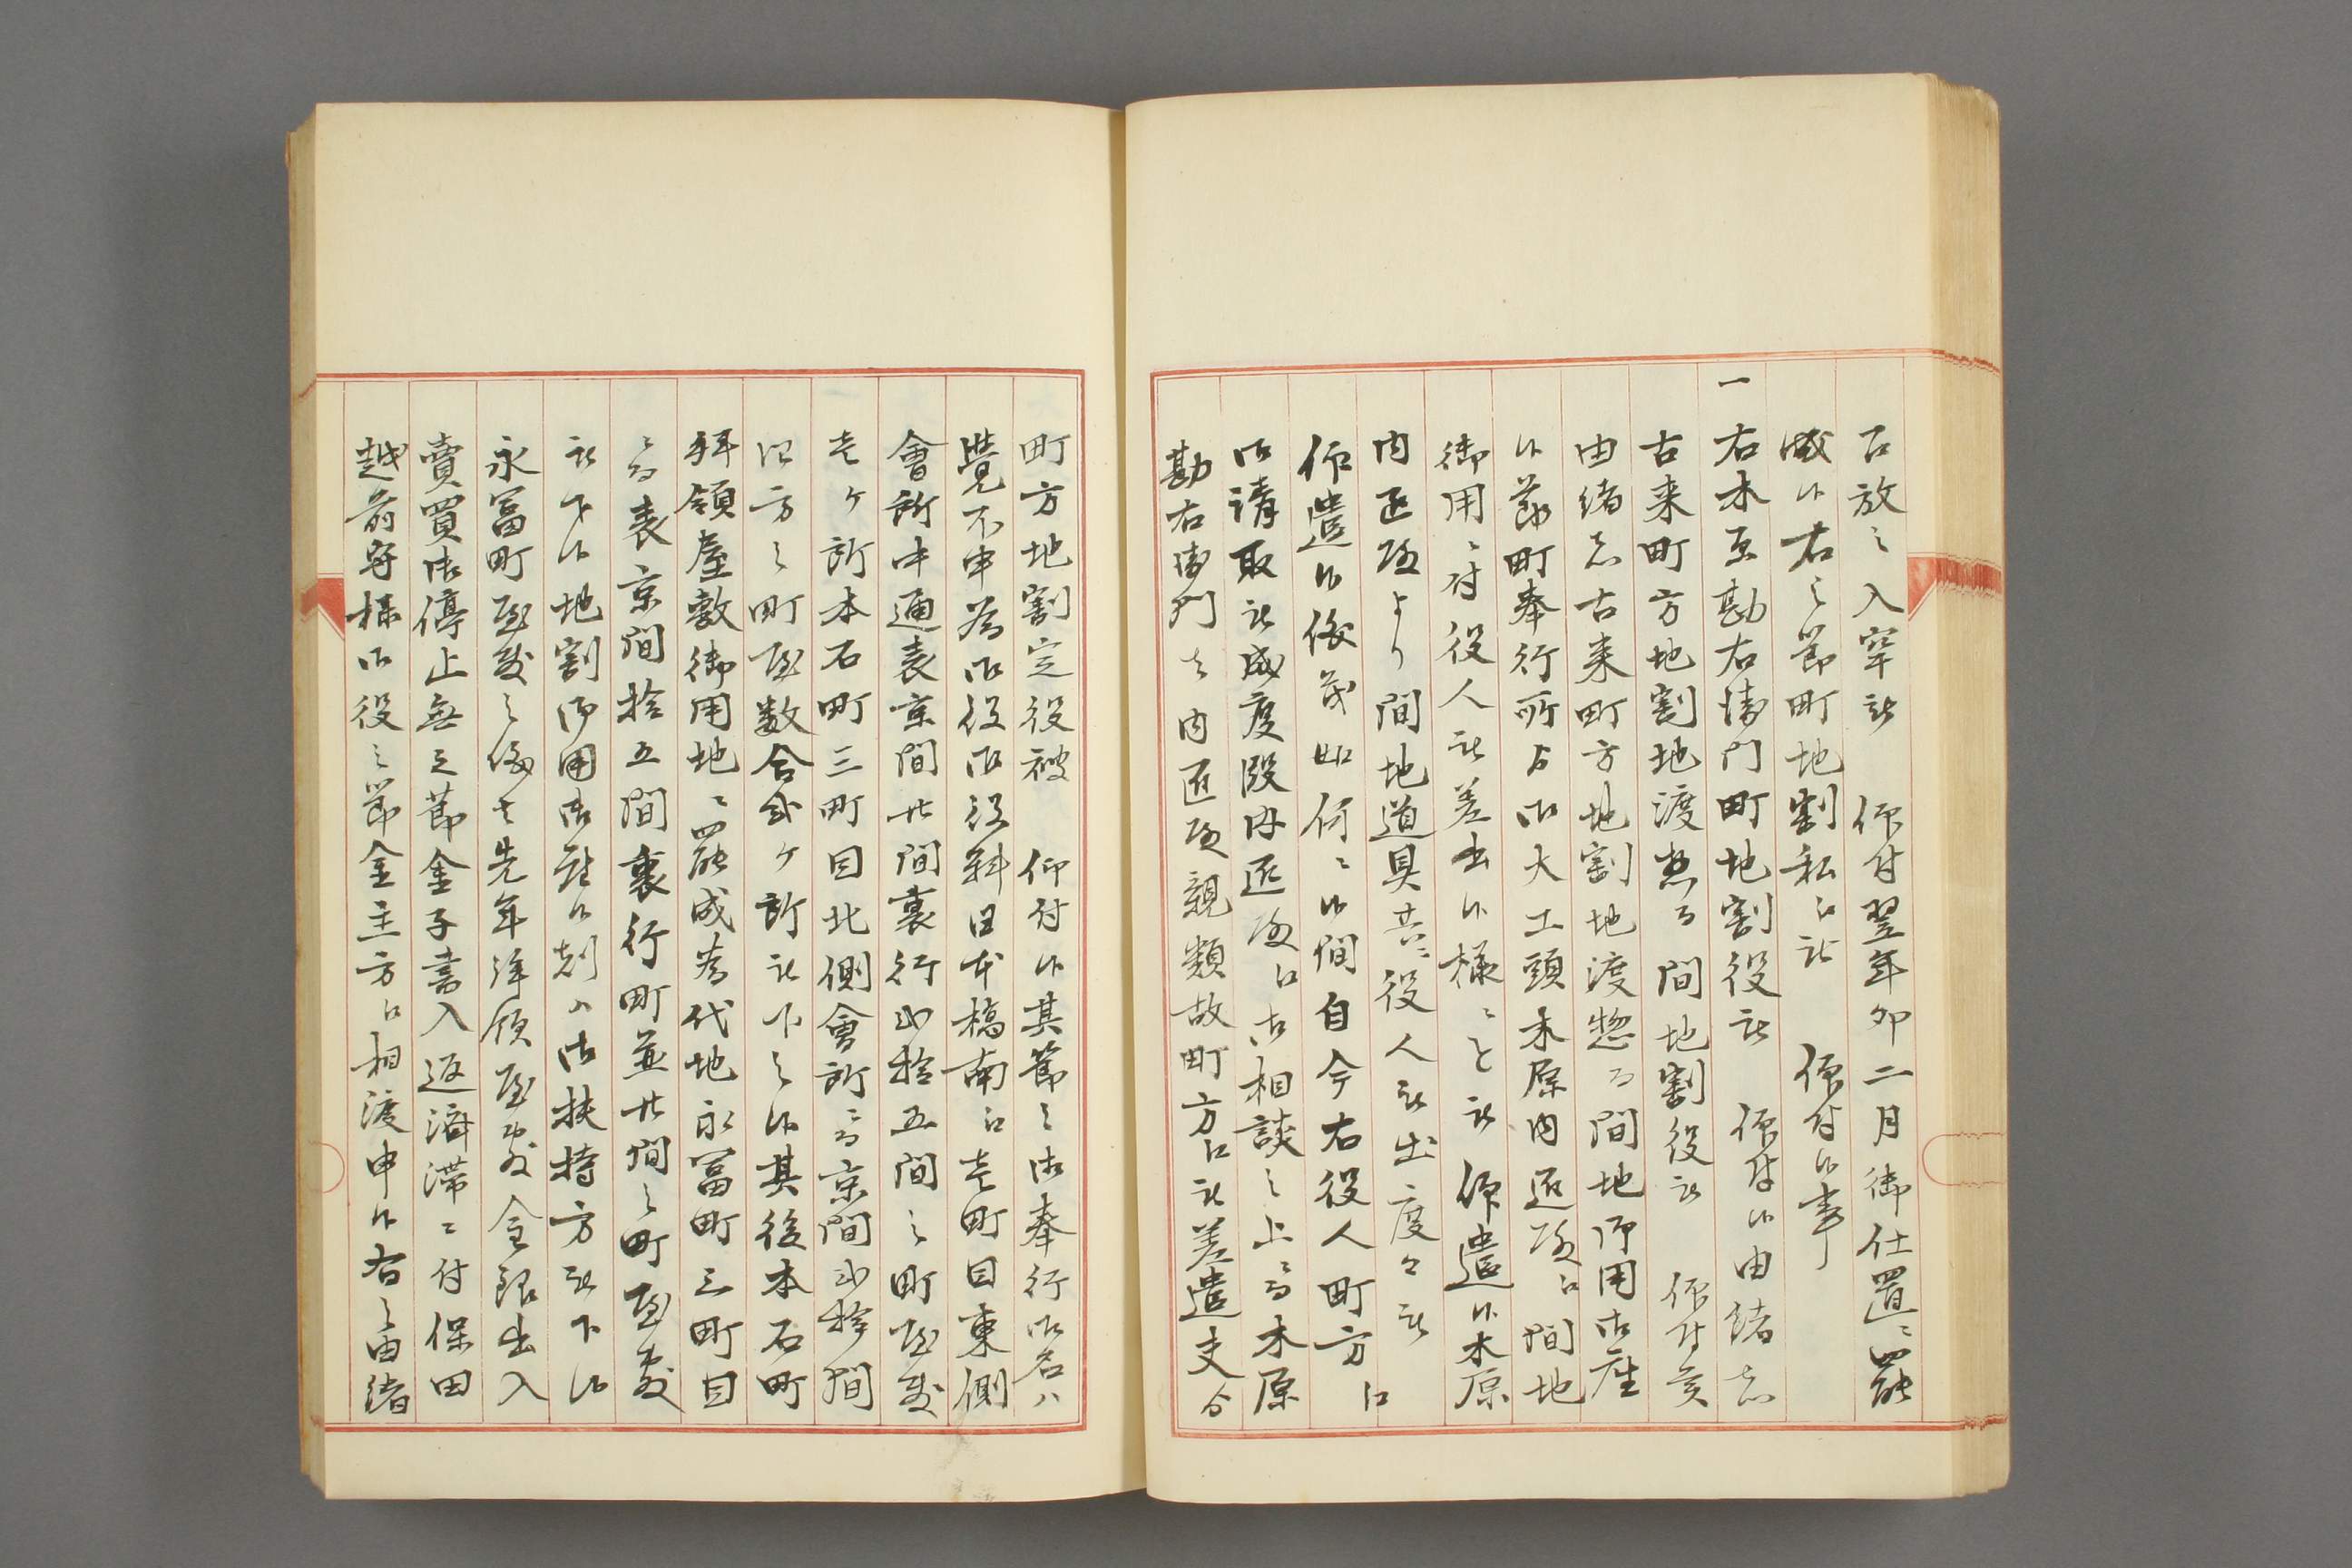 召放之入牢被　仰付翌年卯二月御仕置ニ罷
成候右之節町地割私江被　仰付候事
一 右木原勘右衛門町地割役被　仰付候由緒者
古来町方地割地渡惣而間地割役被　仰付候
由緒者古来町方地割地渡惣而間地御用御座
候節町奉行所ゟ御大工頭木原内匠殿江間地
御用ニ付役人被差出候様ニと被　仰遣候木原
内匠殿より間地道具共ニ役人被出度々被
仰遣候後茂如何ニ候間自今右役人町方江
御請取被成度段内匠殿江御相談之上ニ而木原
勘右衛門は内匠殿親類故町方江被差遣夫ゟ
町方地割定役被　仰付候其節之御奉行御名ハ
覚不申為御役御役料日本橋南江壱町目東側
會所中通表京間廿間裏行弐拾五間之町屋敷
壱ヶ所本石町三町目北側會所ニ而京間弐拾間
四方之町屋敷合弐ヶ所被下之候其後本石町
拝領屋敷御用地ニ罷成為代地永冨町三町目
ニ而表京間拾五間裏行町並廿間之町屋敷
被下候地割御用御勤候刻ハ御扶持方被下候
永冨町屋敷之儀は先年拝領屋敷金銀出入
賣買御停止無之節金子書入返済滞ニ付保田
越前守様御役之節金主方江相渡申候右之由緒